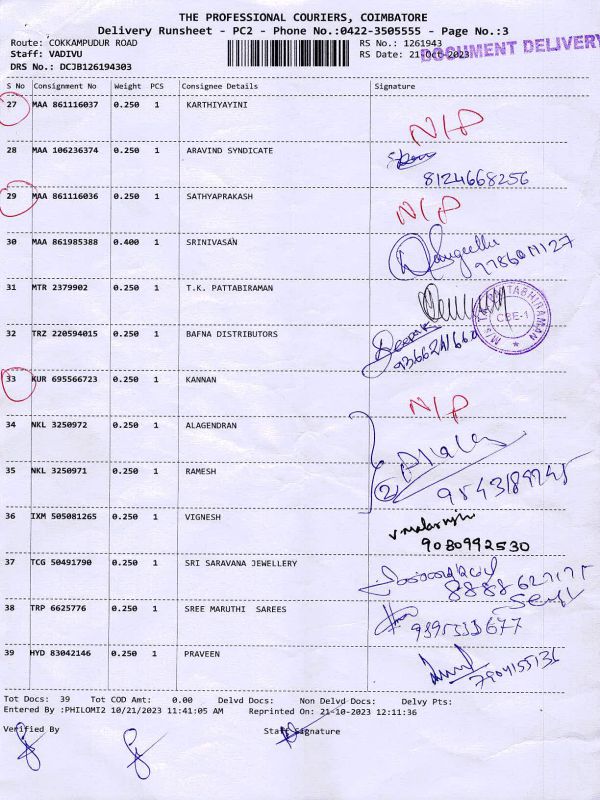 THE PROFESSIONAL COURIERS, COIMBATORE
Delivery Runsheet - PC2 - Phone No.:0422-3505555 - Page No.:3
Route: COKKAMPUDUR ROAD
RS No.: 1261943
DOCUMENT DELIVERY
Staff: VADIVU
RS Date: 21-Oct-2023
DRS No.: DCJB126194303
S No Consignment No Weight PCS Consignee Details Signature
27 MAA 861116037 0.250 1 KARTHIYAYINI
N/P
28 MAA 106236374 0.250 1 ARAVIND SYNDICATE
8124668256
29 MAA 861116036 0.250 1 SATHYAPRAKASH
N/P
30 MAA 861985388 0.400 1 SRINIVASAN
31 MTR 2379902 0.250 1 T.K. PATTABIRAMAN
CBE-1
32 TRZ 220594015 0.250 1 BAFNA DISTRIBUTORS
Deepak
33 KUR 695566723 0.250 1 KANNAN
N/P
34 NKL 3250972 0.250 1 ALAGENDRAN
35 NKL 3250971 0.250 1 RAMESH
2
36 IXM 505081265 0.250 1 VIGNESH
9080992530
37 TCG 50491790 0.250 1 SRI SARAVANA JEWELLERY
38 TRP 6625776 0.250 1 SREE MARUTHI SAREES
39 HYD 83042146 0.250 1 PRAVEEN
7904155136
Tot Docs: 39 Tot COD Amt: 0.00 Delvd Docs: Non Delvd Docs: Delvy Pts:
Entered By :PHILOMI2 10/21/2023 11:41:05 AM Reprinted On: 21-10-2023 12:11:36
Verified By Staff Signature